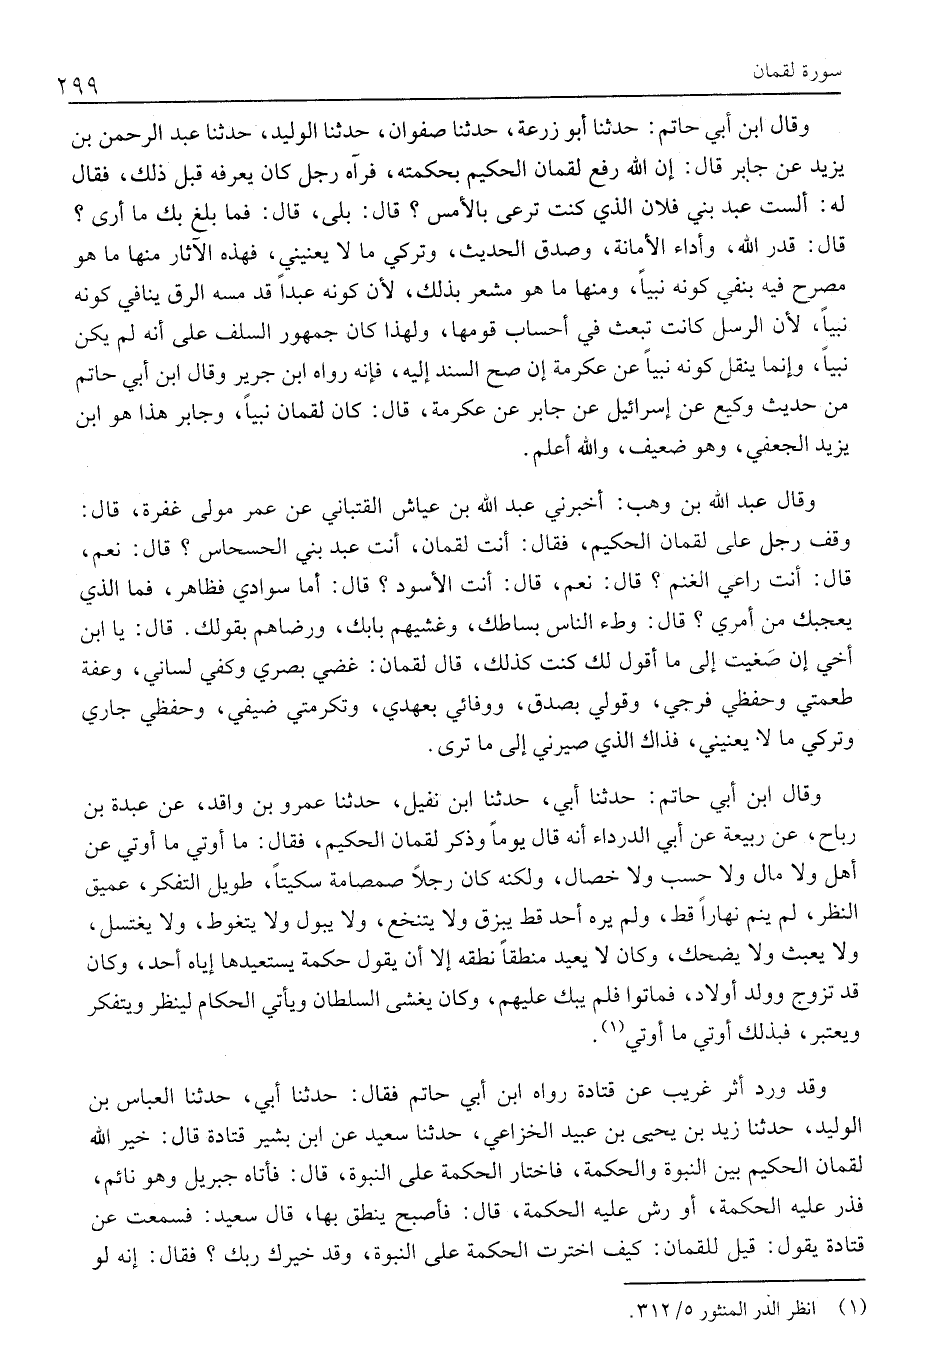 سورة لقمان
٢٩٩
وقال ابن أبي حاتم: حدثنا أبو زرعة، حدثنا صفوان، حدثنا الوليد، حدثنا عبد الرحمن بن
يزيد عن جابر قال: إن الله رفع لقمان الحكيم بحكمته، فرآه رجل كان يعرفه قبل ذلك، فقال
له: ألست عبد بني فلان الذي كنت ترعى بالأمس؟ قال: بلى، قال: فما بلغ بك ما أرى؟
قال: قدر الله، وأداء الأمانة، وصدق الحديث، وتركي ما لا يعنيني، فهذه الآثار منها ما هو
مصرح فيه بنفي كونه نبياً، ومنها ما هو مشعر بذلك، لأن كونه عبداً قد مسه الرق ينافي كونه
نبياً، لأن الرسل كانت تبعث في أحساب قومها، ولهذا كان جمهور السلف على أنه لم يكن
نبياً، وإنما ينقل كونه نبياً عن عكرمة إن صح السند إليه، فإنه رواه ابن جرير وقال ابن أبي حاتم
من حديث وكيع عن إسرائيل عن جابر عن عكرمة، قال: كان لقمان نبياً، وجابر هذا هو ابن
يزيد الجعفي، وهو ضعيف، والله أعلم.
وقال عبد الله بن وهب: أخبرني عبد الله بن عياش القتباني عن عمر مولى غفرة، قال:
وقف رجل على لقمان الحكيم، فقال: أنت لقمان، أنت عبد بني الحسحاس؟ قال: نعم،
قال: أنت راعي الغنم؟ قال: نعم، قال: أنت الأسود؟ قال: أما سوادي فظاهر، فما الذي
يعجبك من أمري؟ قال: وطء الناس بساطك، وغشيهم بابك، ورضاهم بقولك. قال: يا ابن
أخي إن صَغيت إلى ما أقول لك كنت كذلك، قال لقمان: غضي بصري وكفي لساني، وعفة
طعمتي وحفظي فرجي، وقولي بصدق، ووفائي بعهدي، وتكرمتي ضيفي، وحفظي جاري
وتركي ما لا يعنيني، فذاك الذي صيرني إلى ما ترى.
وقال ابن أبي حاتم: حدثنا أبي، حدثنا ابن نفيل، حدثنا عمرو بن واقد، عن عبدة بن
رباح، عن ربيعة عن أبي الدرداء أنه قال يوماً وذكر لقمان الحكيم، فقال: ما أوتي ما أوتي عن
أهل ولا مال ولا حسب ولا خصال، ولكنه كان رجلاً صمصامة سكيتاً، طويل التفكر، عميق
النظر، لم ينم نهاراً قط، ولم يره أحد قط يبزق ولا يتنخع، ولا يبول ولا يتغوط، ولا يغتسل،
ولا يعبث ولا يضحك، وكان لا يعيد منطقاً نطقه إلا أن يقول حكمة يستعيدها إياه أحد، وكان
قد تزوج وولد أولاد، فماتوا فلم يبك عليهم، وكان يغشى السلطان ويأتي الحكام لينظر ويتفكر
ويعتبر، فبذلك أوتي ما أوتي(١).
وقد ورد أثر غريب عن قتادة رواه ابن أبي حاتم فقال: حدثنا أبي، حدثنا العباس بن
الوليد، حدثنا زيد بن يحيى بن عبيد الخزاعي، حدثنا سعيد عن ابن بشير قتادة قال: خير الله
لقمان الحكيم بين النبوة والحكمة، فاختار الحكمة على النبوة، قال: فأتاه جبريل وهو نائم،
فذر عليه الحكمة، أو رش عليه الحكمة، قال: فأصبح ينطق بها، قال سعيد: فسمعت عن
قتادة يقول: قيل للقمان: كيف اخترت الحكمة على النبوة، وقد خيرك ربك؟ فقال: إنه لو
(١) انظر الدر المنثور ٥/ ٣١٢.